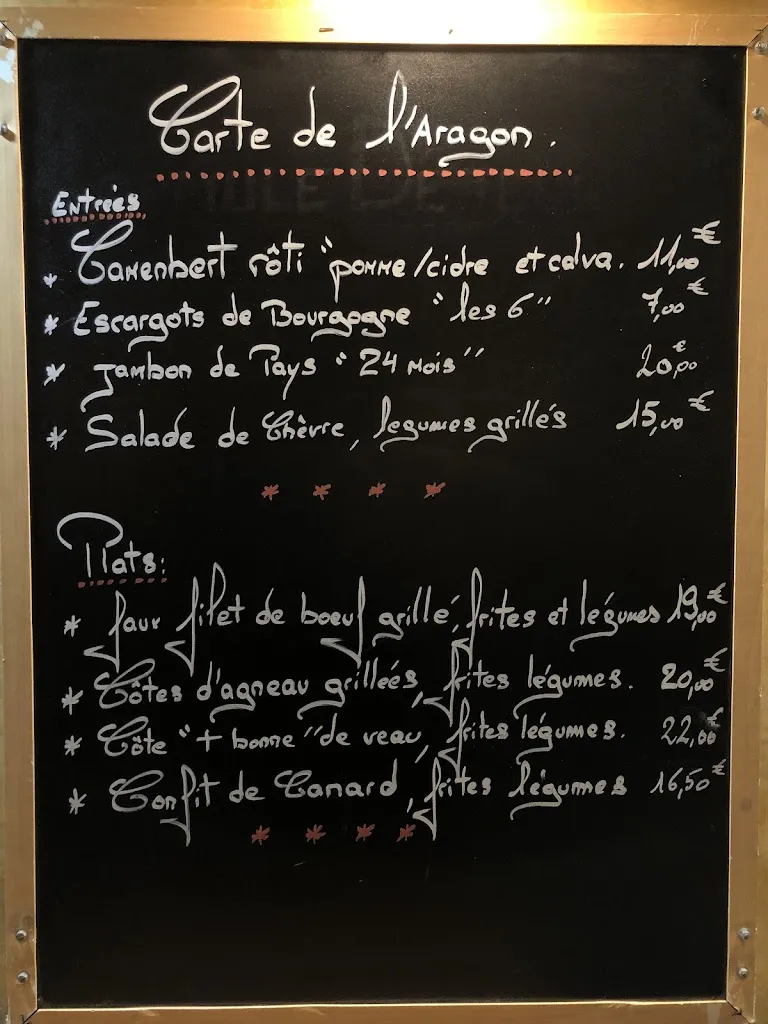 Carte de l'Aragon.
Entrées
* Camenbert rôti "pomme/cidre et calva. 11,00€
* Escargots de Bourgogne "les 6" 7,00€
* Jambon de Pays "24 mois" 20,00€
* Salade de Chèvre, legumes grillés 15,00€
* * * *
Plats:
* faux filet de boeuf grillé, frites et légumes 19,00€
* Côtes d'agneau grilleés, frites légumes. 20,00€
* Côte "+ bonne" de veau, frites légumes. 22,00€
* Confit de Canard, frites légumes 16,50€
* * * *